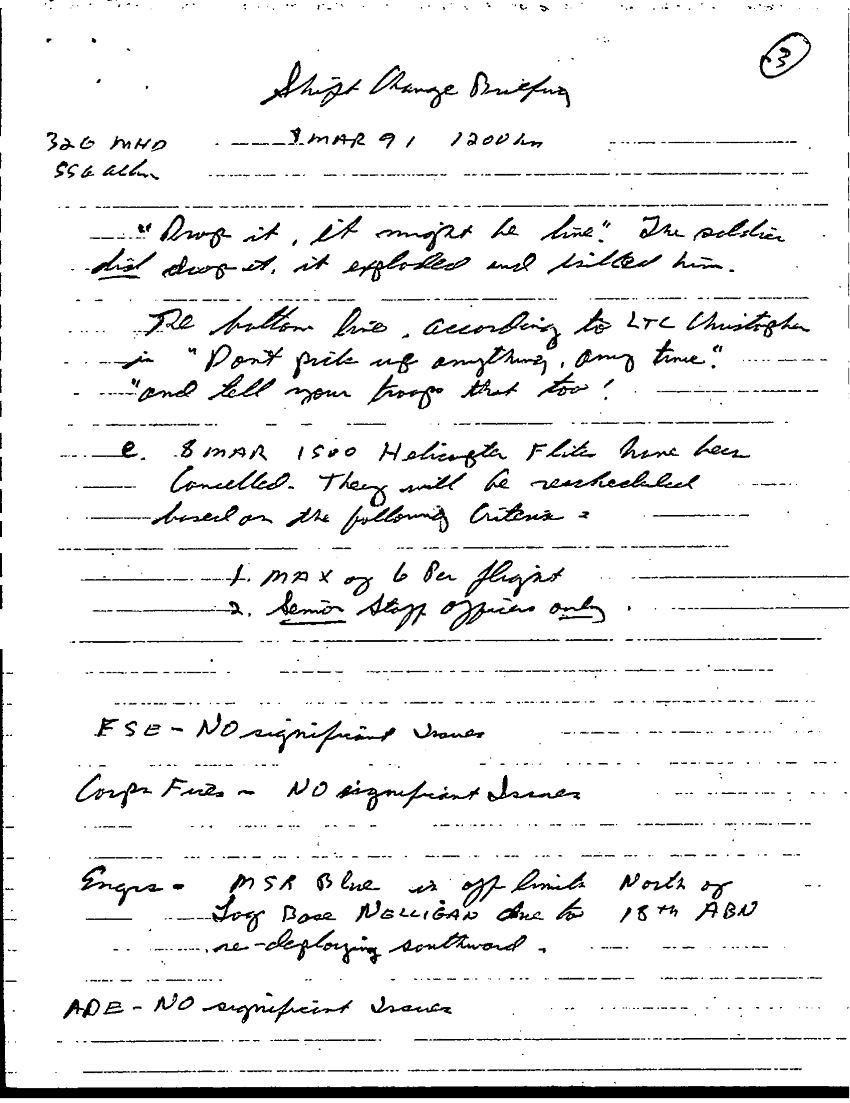 3
Shift Change Briefing
326 MHD 8 MAR 91 1200 hrs
SSG
"Drop it, it might be live". The soldier
did drop it, it exploded and killed him.
The bottom line, according to LTC Christopher
is "Don't pick up anything, any time".
"and tell your troops that too!
e. 8 MAR 1500 Helicopter Flites have been
Cancelled. They will be rescheduled
based on the following Criteria:
1. MAX of 6 Per flight
2. Senior Staff officers only.
FSE - NO significant Issues
Corps Fires - NO significant Issues
Engrs - MSR Blue is off limits North of
Log Base NELLIGAN due to 18th ABN
re-deploying southward.
ADE - NO significant Issues